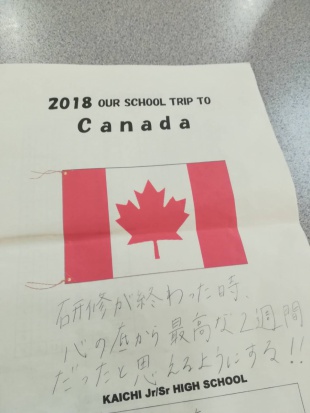 2018 OUR SCHOOL TRIP TO
Canada
研修が終わった時、
心の底から最高な2週間
だったと思えるようにする!!
KAICHI Jr/Sr HIGH SCHOOL